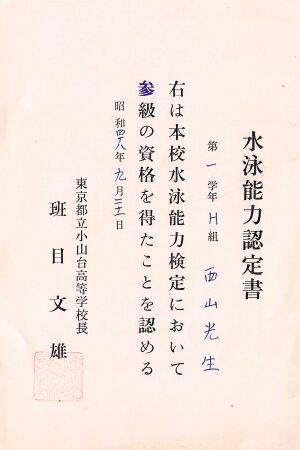 水泳能力認定書
第一学年H組 西山光生
右は本校水泳能力検定において
参級の資格を得たことを認める
昭和四八年九月三十日
東京都立小山台高等学校長
班目文雄